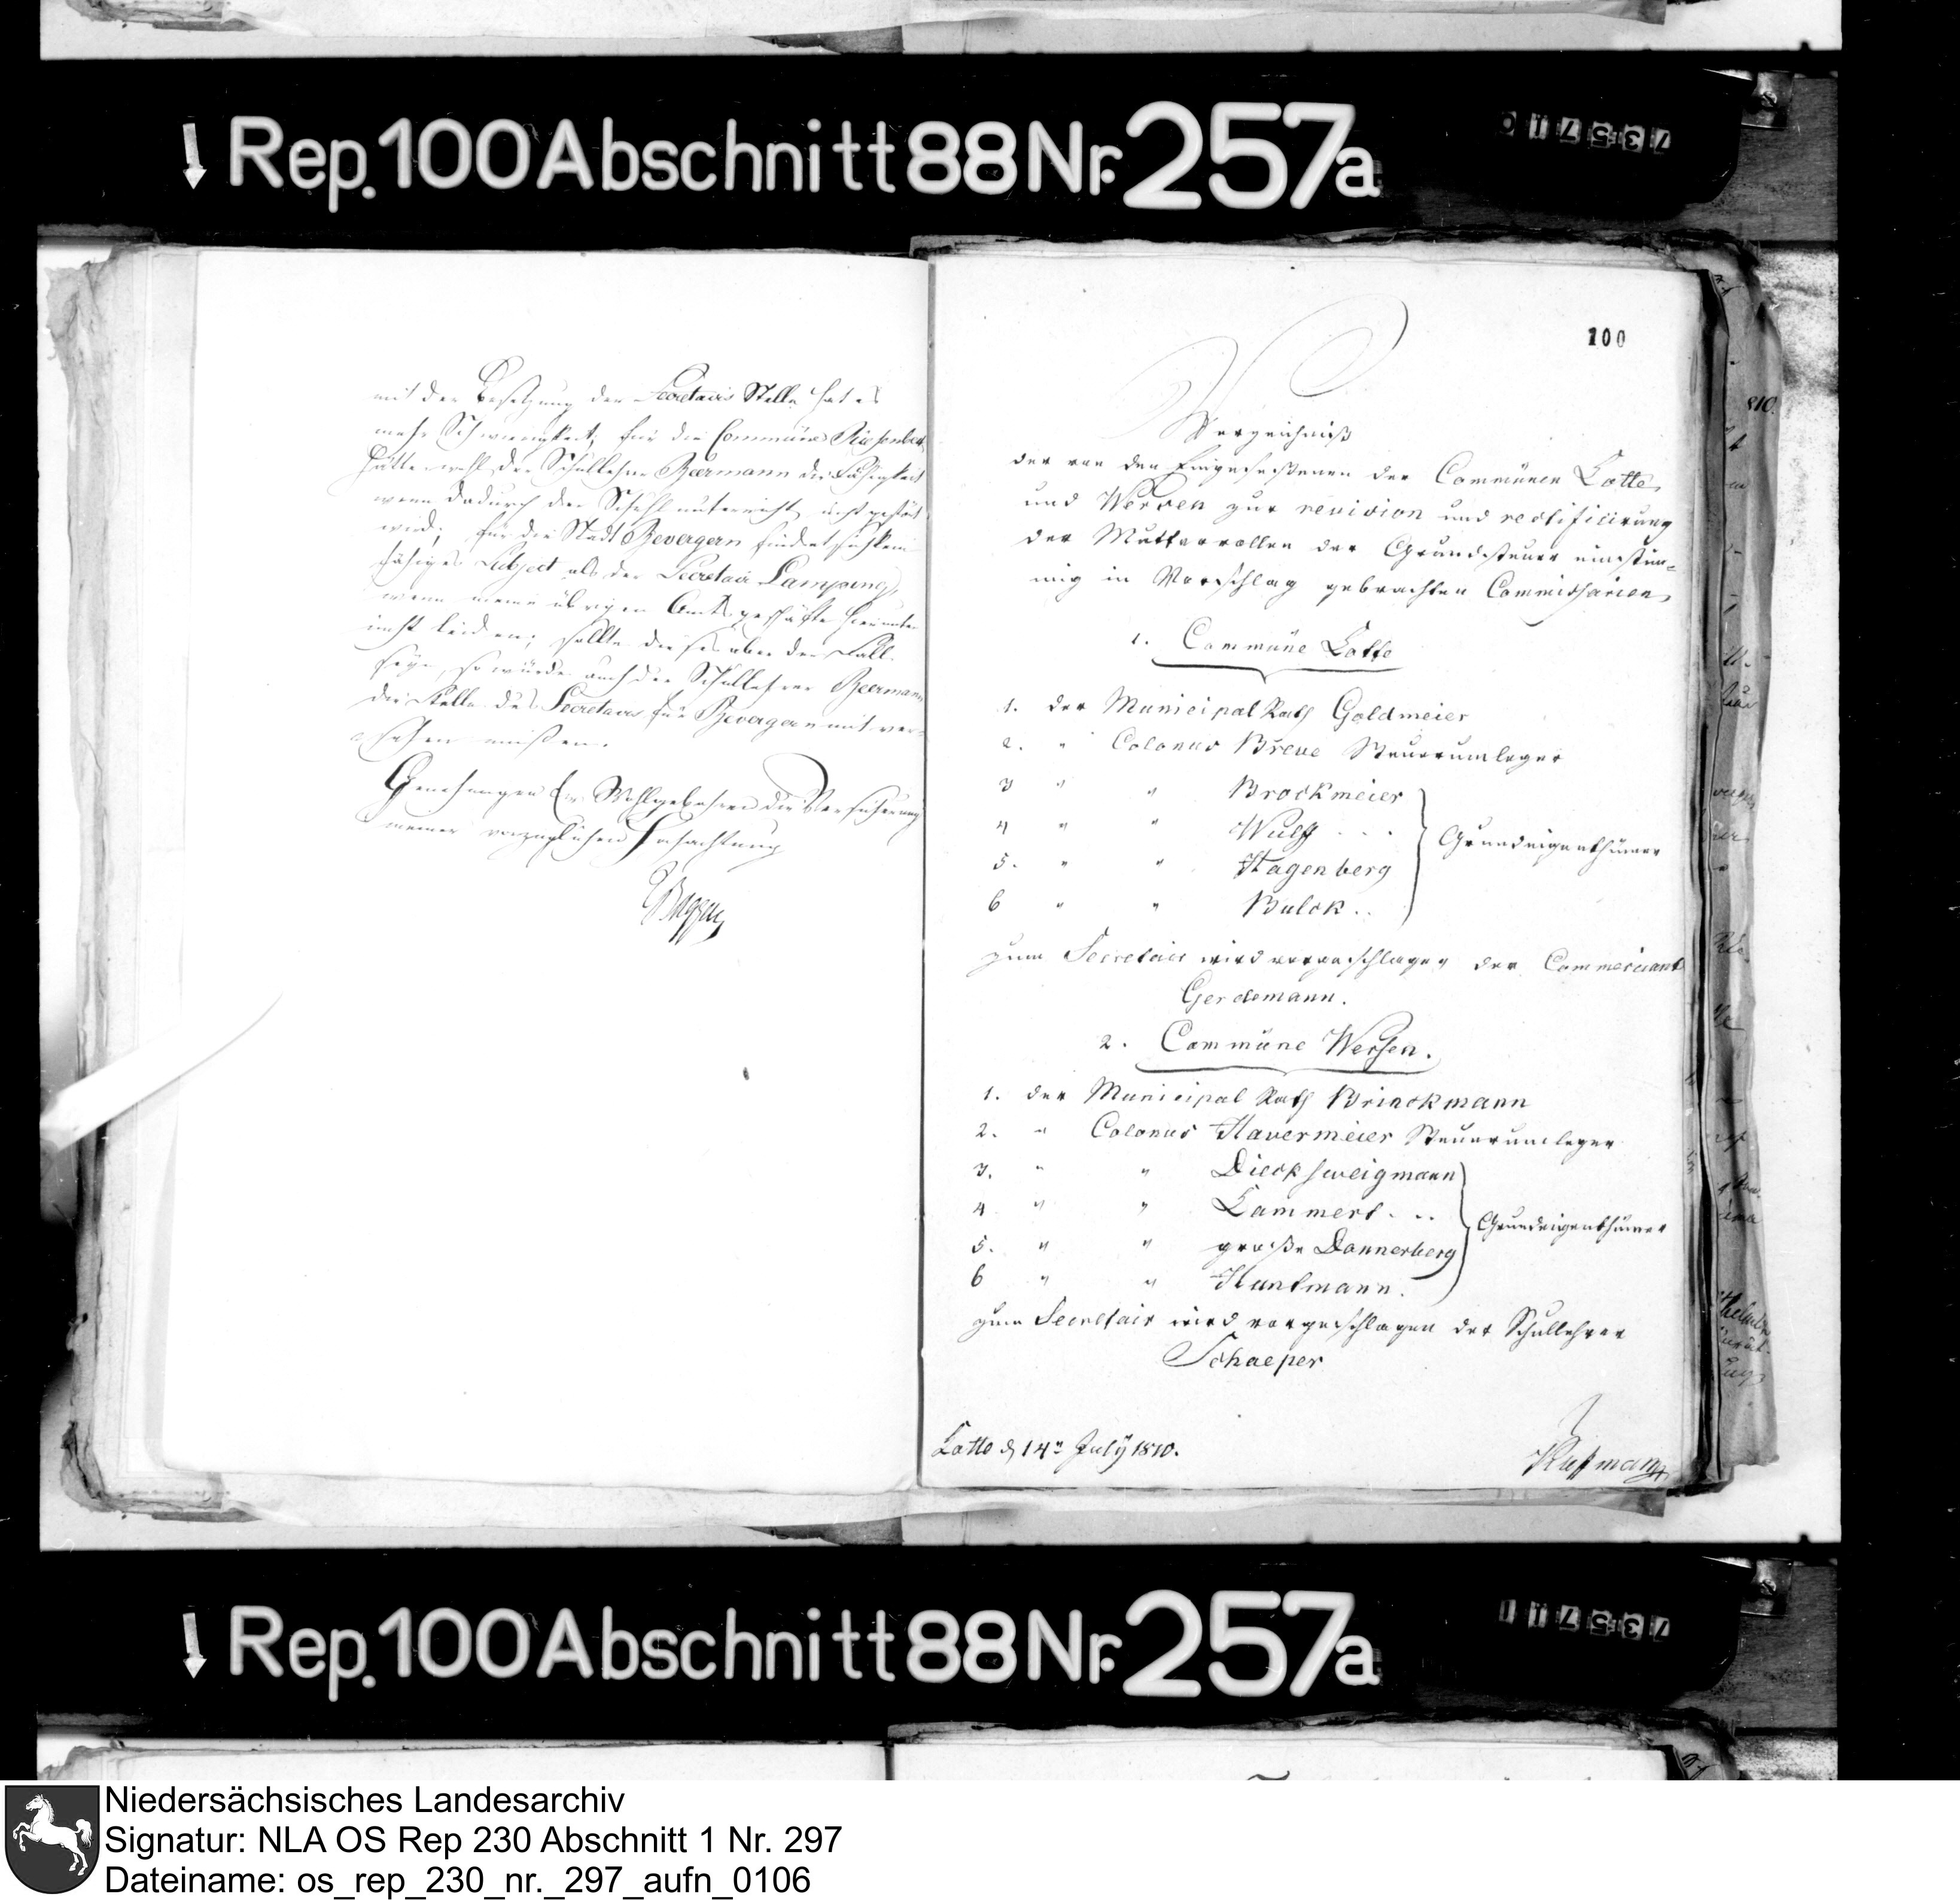 Rep. 100 Abschnitt 88 Nr. 257a
73571 0
mit der Besetzung der Secretairs Stelle hat es
mehr Schwierigkeit, für die Commüne Riesenbeck
hätte wohl der Schullehrer Beermann die Fähigkeit
wenn dadurch der Schulunterricht nicht gestört
wird; für die Stadt Bevergern findet sich kein
fähiges Subject als der Secretair Lampeng,
wenn meine übrigen Amtsgeschäfte hierunter
nicht leiden; sollte dieses aber der Fall
seyn, so würde auch der Schullehrer Beermann
die Stelle des Secretairs für Bevergern mit ver-
sehen müßen.
Genehmigen Ew. Wohlgebohren die Versicherung
meiner vorzüglichen Hochachtung
100
Verzeichniß
der von den Eingeseßenen der Commünen Lotte
und Wersen zur revision und rectificirung
der Mutterrollen der Grundsteuer einstim-
mig in Vorschlag gebrachten Commissarien
1. Commüne Lotte
1. der Municipal Rath Goldmeier
2. " Colonus Breve Steuerumleger
3 " " Brockmeier
4 " " Wulff . . .
5. " " Hagenberg
6 " " Bulck . .
Grundeigenthümer
zum Secretair wird vorgeschlagen der Commerciant
Gerdemann.
2. Commüne Wersen.
1. der Municipal Rath Brinckmann
2. " Colonus Havermeier Steuerumleger
3. " " Dierksweigmann
4 " " Lammert . . .
5. " " große Dannerberg
6 " " Huntmann.
Grundeigenthümer
zum Secretair wird vorgeschlagen der Schullehrer
Schaeper
Lotte d 14n July 1810.
810.
Rep. 100 Abschnitt 88 Nr. 257a
73571 1
Niedersächsisches Landesarchiv
Signatur: NLA OS Rep 230 Abschnitt 1 Nr. 297
Dateiname: os_rep_230_nr._297_aufn_0106